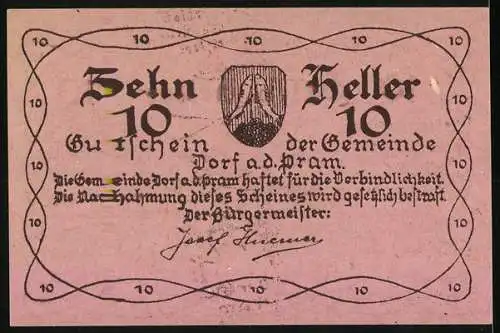 10 10 10 10 10
Zehn Heller
10 10
Gutschein der Gemeinde
Dorf a.d. Pram.
Die Gemeinde Dorf a.d. Pram haftet für die Verbindlichkeit.
Die Nachahmung dieses Scheines wird gesetzlich bestraft.
Der Bürgermeister:
Josef
10 10
10 10
10 10
10 10 10 10 10